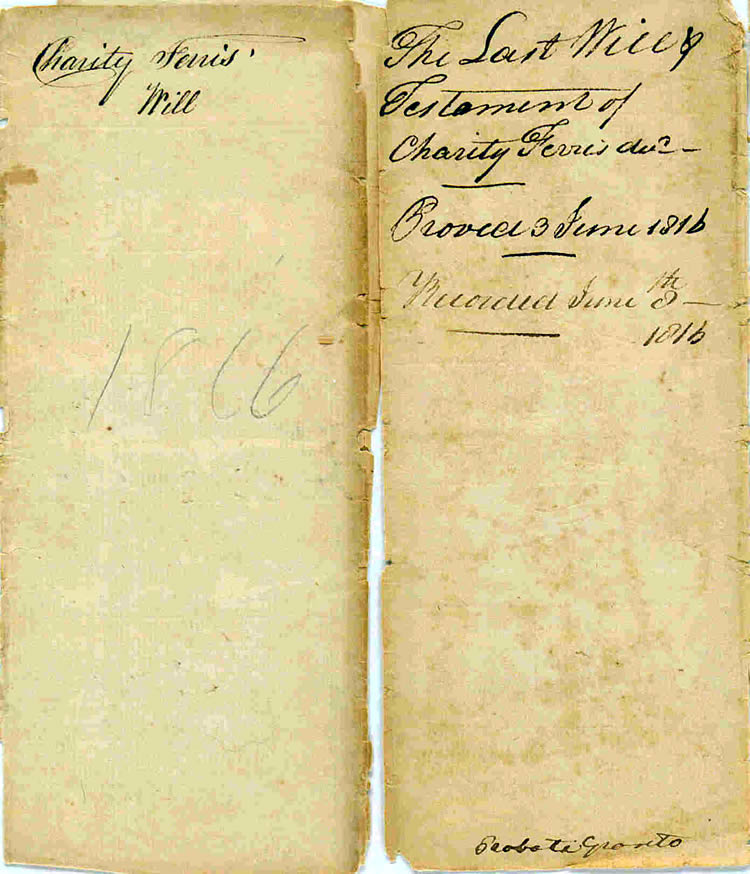 Charity Ferris'
Will
1866
The Last Will &
Testament of
Charity Ferris decd
Proved 3 June 1816
Recorded June 8th
1816
Probate Granted